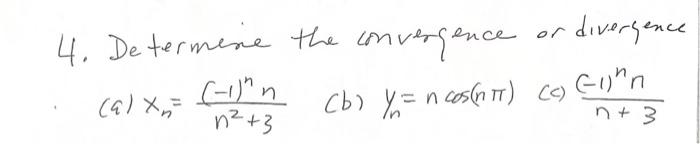 4. Determine the convergence or divergence
(a) xₙ = (-1)ⁿ n / n² + 3 (b) yₙ = n cos(nπ) (c) (-1)ⁿ n / n + 3